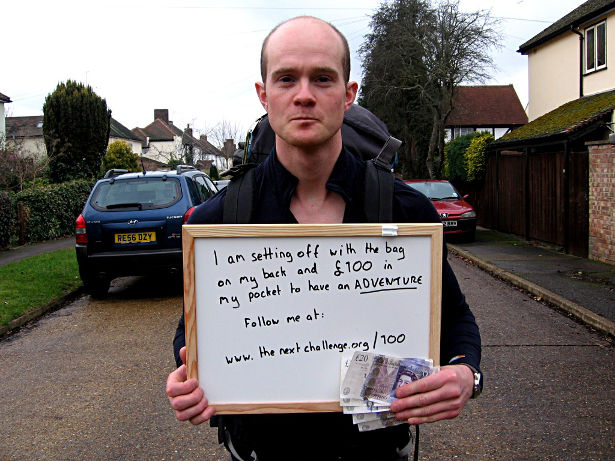 I am setting off with the bag
on my back and £100 in
my pocket to have an ADVENTURE
Follow me at:
www.thenextchallenge.org/100
£20
RE56 DZY